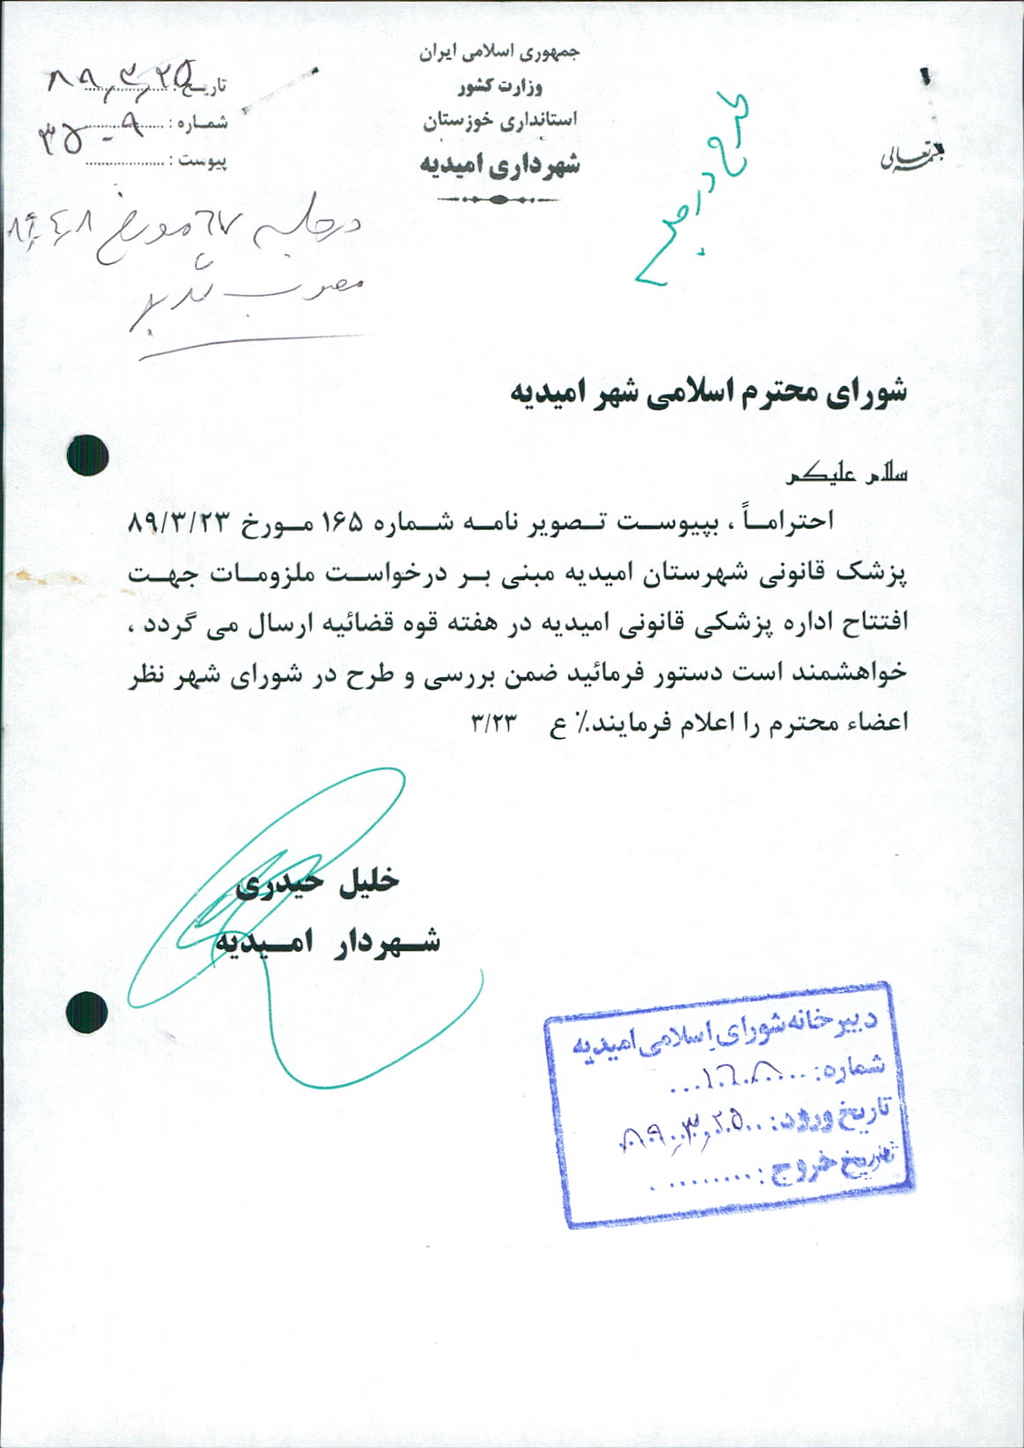 بسمه تعالی
جمهوری اسلامی ایران
وزارت کشور
استانداری خوزستان
شهرداری امیدیه
تاریخ : ۸۹٫۳٫۲۵
شماره : ۳۵۰۹
پیوست :
طرح در جلسه
در جلسه ۶۷ مورخ
مصوب گردید
شورای محترم اسلامی شهر امیدیه
سلام علیکم
احتراماً ، بپیوست تصویر نامه شماره ۱۶۵ مورخ ۸۹/۳/۲۳
پزشک قانونی شهرستان امیدیه مبنی بر درخواست ملزومات جهت
افتتاح اداره پزشکی قانونی امیدیه در هفته قوه قضائیه ارسال می گردد ،
خواهشمند است دستور فرمائید ضمن بررسی و طرح در شورای شهر نظر
اعضاء محترم را اعلام فرمایند.٪ ع ۳/۲۳
خلیل حیدری
شهردار امیدیه
دبیرخانه شورای اسلامی امیدیه
شماره:
تاریخ ورود: ۸۹٫۳٫۲۵
تاریخ خروج: